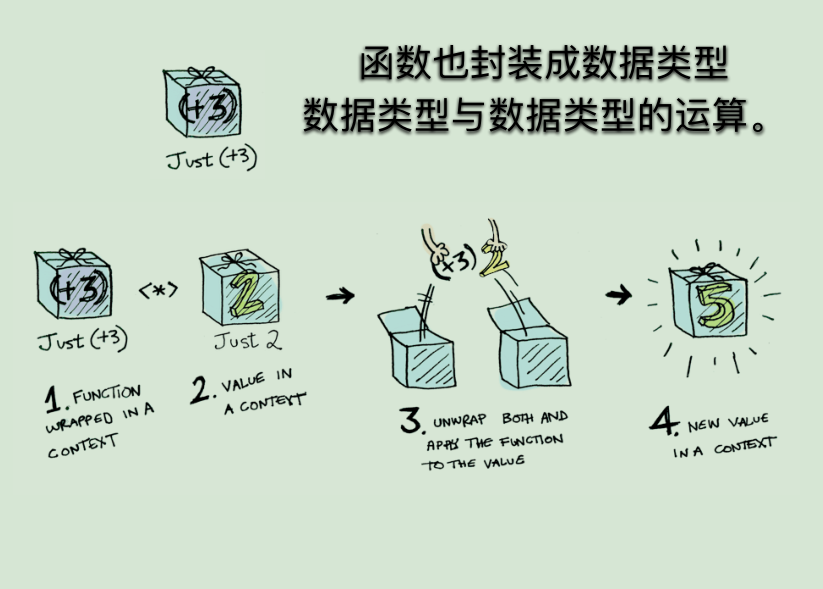 函数也封装成数据类型
数据类型与数据类型的运算。
(+3)
Just (+3)
(+3)
<*>
2
Just (+3)
Just 2
(+3) 2
5
1. FUNCTION
WRAPPED IN A
CONTEXT
2. VALUE IN
A CONTEXT
3. UNWRAP BOTH AND
APPLY THE FUNCTION
TO THE VALUE
4. NEW VALUE
IN A CONTEXT